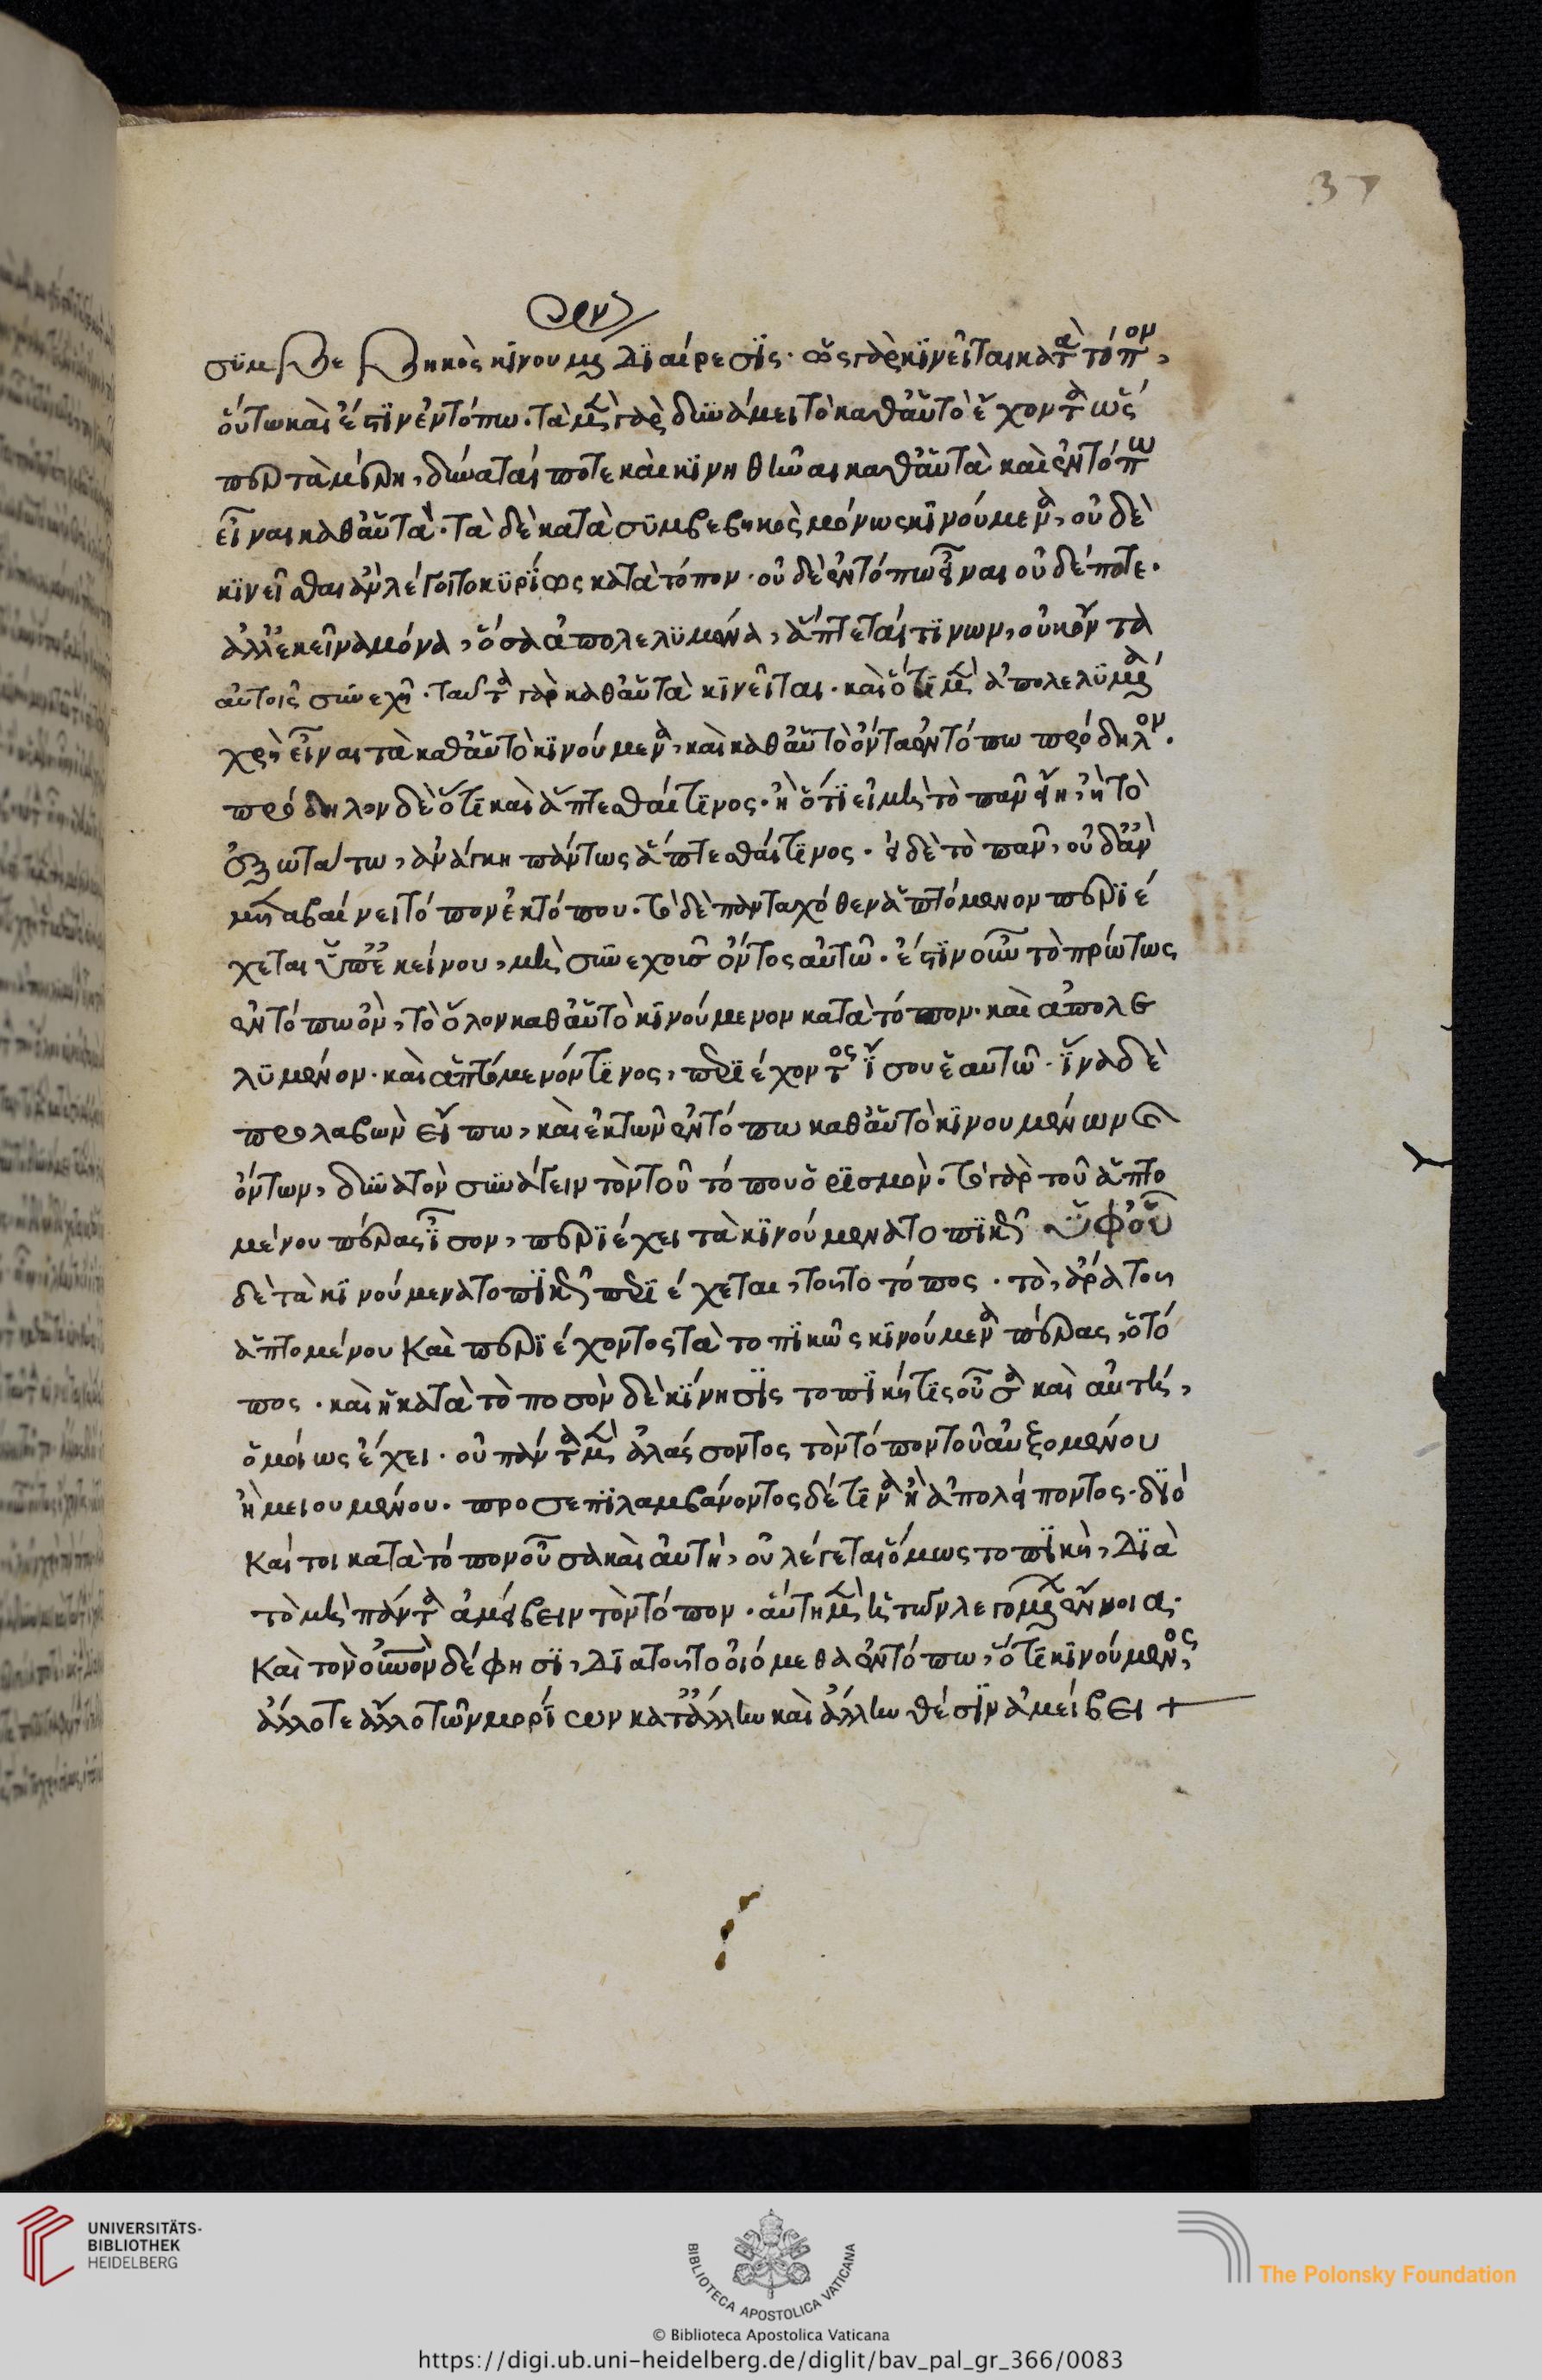 37
συμβεβηκὸς κινουμένων διαίρεσις · ὡς γὰρ κινεῖται κατὰ τόπον,
οὕτω καὶ ἔστιν ἐν τόπω · τὰ μὲν γὰρ δυνάμει τὸ καθ' αὑτὸ ἔχοντα ὡς
περ τὰ μέρη, δύναταί ποτε καὶ κινηθῆναι καθ' αὑτὰ καὶ ἐν τόπω
εἶναι καθ' αὑτά · τὰ δὲ κατὰ συμβεβηκὸς μόνως κινούμενα, οὐδὲ
κινεῖσθαι ἂν λέγοιτο κυρίως κατὰ τόπον · οὐδὲ ἐν τόπω εἶναι οὐδέποτε ·
ἀλλ' ἐκεῖνα μόνα, ὅσα ἀπολελυμένα, ἅπτεταί τινων, οὐκ ὄντα
αὐτοῖς συνεχῆ · ταῦτα γὰρ καθ' αὑτὰ κινεῖται · καὶ ὅτι μὲν ἀπολελυμένα
χρὴ εἶναι τὰ καθ' αὑτὸ κινούμενα, καὶ καθ' αὑτὸ ὄντα ἐν τόπω πρόδηλον ·
πρόδηλον δὲ ὅτι καὶ ἅπτεσθαί τινος · ἢ ὅτι εἰ μὴ τὸ πᾶν εἴη, ἢ τὸ
ἐξωτάτω, ἀνάγκη πάντως ἅπτεσθαί τινος · εἰ δὲ τὸ πᾶν, οὐδ' ἂν
μεταβαίνει τόπον ἐκ τόπου · τὸ δὲ πανταχόθεν ἁπτόμενον περιέ
χεται ὑπ' ἐκείνου, μὴ συνεχοῦς ὄντος αὐτῶ · ἔστιν οὖν τὸ πρώτως
ἐν τόπω ὂν, τὸ ὅλον καθ' αὑτὸ κινούμενον κατὰ τόπον · καὶ ἀπολε
λυμένον · καὶ ἁπτόμενόν τινος, περιέχοντος ἴσου ἑαυτῶ · ἵνα δὲ
προλαβὼν εἴπω, καὶ ἐκ τῶν ἐν τόπω καθ' αὑτὸ κινουμένων
ὄντων, δυνατὸν συνάγειν τὸν τοῦ τόπου ὁρισμὸν · τὸ γὰρ τοῦ ἁπτο
μένου πέρας ἴσον, περιέχει τὰ κινούμενα τοπικῶς ὑφ' οὗ
δὲ τὰ κινούμενα τοπικῶς περιέχεται, τοῦτο τόπος · τὸ, ἄρα τοῦ
ἁπτομένου καὶ περιέχοντος τὰ τοπικῶς κινούμενα πέρας, ὁ τό
πος · καὶ ἡ κατὰ τὸ ποσὸν δὲ κίνησις τοπική τις οὖσα καὶ αὐτὴ,
ὁμοίως ἔχει · οὐ πάντα μὲν ἀλάσοντος τὸν τόπον τοῦ αὐξομένου
ἢ μειουμένου · προσεπιλαμβάνοντος δέ τινα ἢ ἀπολείποντος · διὸ
καίτοι κατὰ τόπον οὖσα καὶ αὐτὴ, οὐ λέγεται ὅμως τοπικὴ, διὰ
τὸ μὴ πάντα ἀμείβειν τὸν τόπον · αὕτη μὲν ἡ τῶν λεγομένων ἔννοια ·
καὶ τὸν οὐρανὸν δέ φησι, διὰ τοῦτο οἰόμεθα ἐν τόπω, ὅτι κινούμενος,
ἄλλοτε ἄλλο τῶν μορίων κατ' ἄλλην καὶ ἄλλην θέσιν ἀμείβει +
UNIVERSITÄTS-
BIBLIOTHEK
HEIDELBERG
BIBLIOTECA APOSTOLICA VATICANA
The Polonsky Foundation
© Biblioteca Apostolica Vaticana
https://digi.ub.uni-heidelberg.de/diglit/bav_pal_gr_366/0083